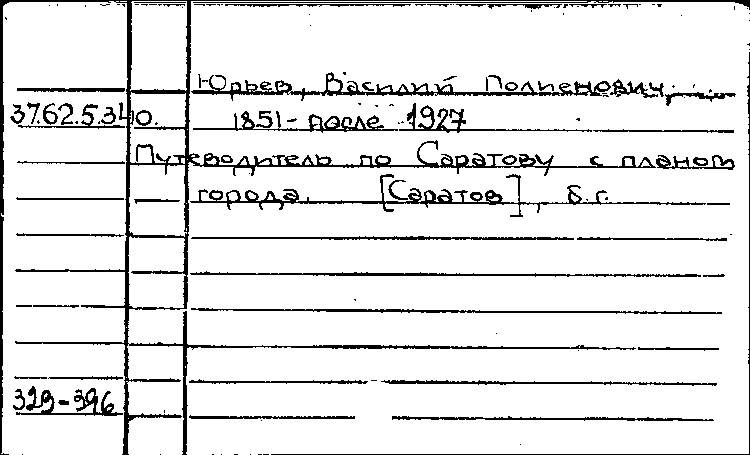 Юрьев, Василий Полиенович,
37.62.5.34 Ю. 1851- после 1927
Путеводитель по Саратову с планом
города. [Саратов], б.г.
329-396